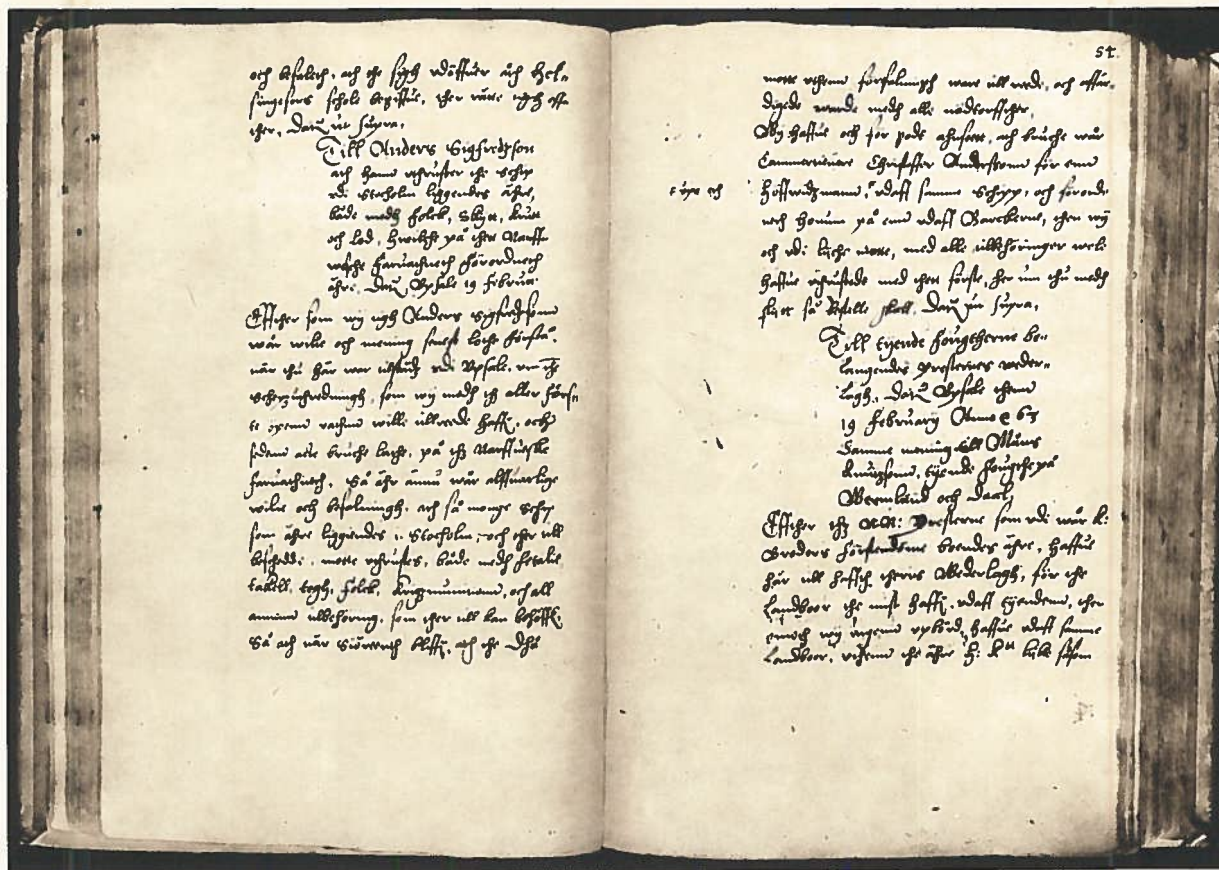 och befalech, ath the sigh udöffuer åth Hel-
singefors schole begiffue, ther våre
ther, Datum ut supra.
Till Anders Sigfredzson
ath hann uthruster the Schip
vdi Stocholm liggendes ähre,
både medh folck, Skytt, Krutt
och Lod, hwilche på then Narffu-
iesche faruathnet förordnedh
ähre. Datum Vpsale 19 Februar
Effther som wij tigh Anders Sigfredssonn
wår wilie och mening senest lothe förstå,
när thu här war udi Vpsale, om
som wij medh thz aller först-
te öpett vathnn wille haffue, och
sedenn bruche lathe, på thz Narffueske
faruathneth, Så ähr ännu wår alffuarlige
wilie och befalningh, ath så monge Schip
som ähre liggendes i Stocholm, och ther till
beskedde, motte uthrustes, både medh fetalie
tackell, togh, folck, Krigzmunition, och all
annen tilbehöring, som ther till kan behöffues
Så ath när Siögergh bliffue, ath the
54
motte uthenn försumningh ware till rede, och
wende medh alle nödtorffther.
Wij haffue och for gode ansett, ath bruche wår
Cammererare Christoffer Andersonn för enn
töpe och
Höffuidzmann, vdaff samme Schipp, och förordne-
neth honum på enn vdaff Barckerne, then wij
och vdi lijche motte, med alle tillbehöringer wele
haffue uthrustede med thett förste, her um thu medh
flijtt så bestelle skall. Datum ut supra.
Till tijende fougtherne be-
langendes presternes weder-
lagh, Datum Vpsale thenn
19 February Anno &c 63
Samme mening till Måns
Knutzsonn, tijende fougthe på
Wermland och Daal,
Effther thz att: Presterne som vdi wår K:
Broders förstendöme boendes ähre, haffue
här till hafft theris Wederlagh, för the
Landboor the mist haffue, vdaff tijendenn, then
doch wij ingenn vpbörd haffue vdaff samme
Landboor, uthenn the ähre h: K tt lijke såsom